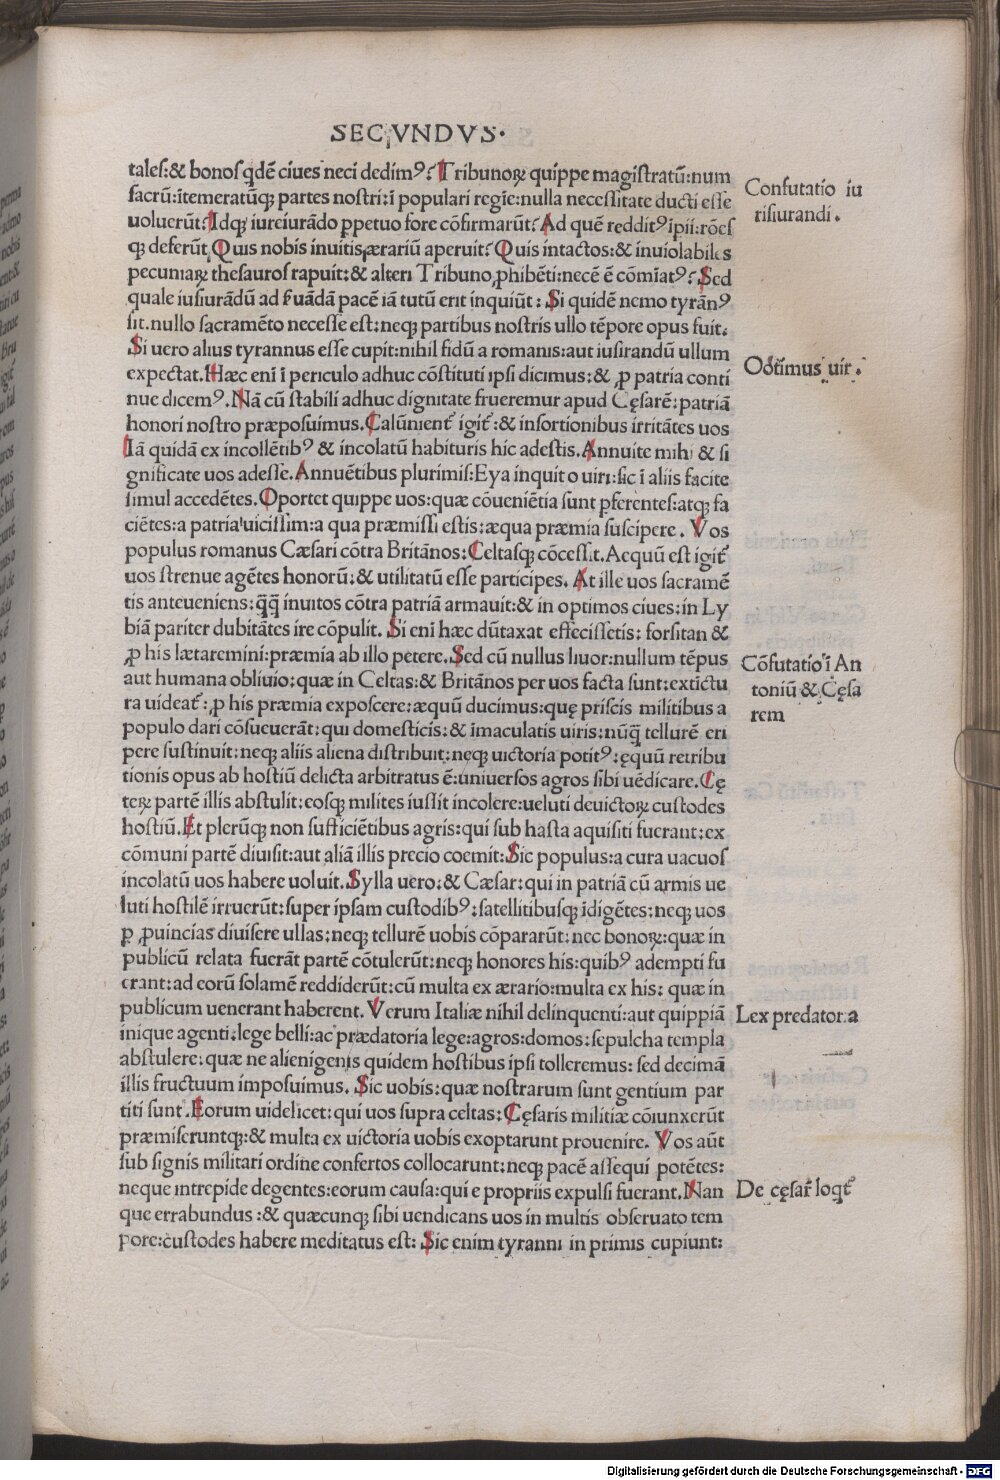 SECVNDVS·
tales:& bonos qdē ciues neci dedimꝰ? Tribunoꝝ quippe magistratū:num
sacrū:ītemeratūqꝫ partes nostri:ī populari regie:nulla necessitate ducti esse
uoluerūt? Idqꝫ iureiurādo ꝑpetuo fore cōfirmarūt? Ad quē redditꝰ ipii:rōes
qꝫ deferūt Quis nobis inuitis ærariū aperuit? Quis intactos:& inuiolabiles
pecuniaꝝ thesauros rapuit:& alteri Tribuno ꝓhibēti:necē ē cōmiatꝰ? Sed
quale iusiurādū ad ẜuādā pacē iā tutū erit inquiūt: Si quidē nemo tyrānꝰ
sit.nullo sacramēto necesse est:neqꝫ partibus nostris ullo tēpore opus fuit.
Si uero alius tyrannus esse cupit:nihil fidū a romanis:aut iusirandū ullum
expectat. Hæc eni ī periculo adhuc cōstituti ipsi dicimus:& ꝓ patria conti
nue dicemꝰ. Nā cū stabili adhuc dignitate frueremur apud Cęsarē: patriā
honori nostro præposuimus. Calūnient̄ igit̄:& insortionibus irritātes uos
Iā quidā ex incollētibꝰ & incolatū habituris hic adestis. Annuite mihi & si
gnificate uos adesse. Annuētibus plurimis: Eya inquit o uiri:sic ī aliis facite
simul accedētes. Oportet quippe uos:quæ cōueniētia sunt pferentes:atqꝫ fa
ciētes:a patria uicissim:a qua præmissi estis:æqua præmia suscipere. Vos
populus romanus Cæsari cōtra Britānos: Celtasqꝫ cōcessit. Aequū est igit̄
uos strenue agētes honorū:& utilitatū esse participes. At ille uos sacramē
tis anteueniens:q̄q̄ inuitos cōtra patriā armauit:& in optimos ciues:in Ly
biā pariter dubitātes ire cōpulit. Si eni hæc dūtaxat effecissetis: forsitan &
ꝓ his lætaremini:præmia ab illo petere. Sed cū nullus liuor:nullum tēpus
aut humana obliuio:quæ in Celtas:& Britānos per uos facta sunt:extictu
ra uideat̄:ꝓ his præmia exposcere:æquū ducimus:quę priscis militibus a
populo dari cōsueuerāt:qui domesticis:& īmaculatis uiris:nūq̄ tellurē eri
pere sustinuit:neqꝫ aliis aliena distribuit:neqꝫ uictoria potitꝰ:ęquū retribu
tionis opus ab hostiū delicta arbitratus ē:uniuersos agros sibi uēdicare. Cę
teꝝ partē illis abstulit:eosqꝫ milites iussit incolere:ueluti deuictoꝝ custodes
hostiū. Et plerūqꝫ non sufficiētibus agris:qui sub hasta aquisiti fuerant:ex
cōmuni partē diuisit:aut aliā illis precio coemit: Sic populus:a cura uacuos
incolatū uos habere uoluit. Sylla uero:& Cæsar:qui in patriā cū armis ue
luti hostilē irruerūt:super ipsam custodibꝰ:satellitibusqꝫ īdigētes:neqꝫ uos
ꝑ ꝓuincias diuisere ullas:neqꝫ tellurē uobis cōpararūt:nec bonoꝝ:quæ in
publicū relata fuerāt partē cōtulerūt:neqꝫ honores his:quibꝰ adempti fu
erant:ad eorū solamē reddiderūt:cū multa ex ærario:multa ex his: quæ in
publicum uenerant haberent. Verum Italiæ nihil delinquenti:aut quippiā
inique agenti.lege belli:ac prædatoria lege:agros:domos:sepulcha templa
abstulere:quæ ne alienigenis quidem hostibus ipsi tolleremus: sed decimā
illis fructuum imposuimus. Sic uobis:quæ nostrarum sunt gentium par
titi sunt. Eorum uidelicet:qui uos supra celtas: Cęsaris militiæ cōiunxerūt
præmiseruntqꝫ:& multa ex uictoria uobis exoptarunt prouenire. Vos aūt
sub signis militari ordine confertos collocarunt:neqꝫ pacē assequi potētes:
neque intrepide degentes:eorum causa:qui e propriis expulsi fuerant. Nan
que errabundus:& quæcunqꝫ sibi uendicans uos in multis obseruato tem
pore:custodes habere meditatus est: Sic enim tyranni in primis cupiunt:
Confutatio iu
risiurandi.
Optimus uir.
Cōfutatio ī An
toniū & Cęsa
rem
Lex predatoria
De cęsar̄ loqt̄
Digitalisierung gefördert durch die Deutsche Forschungsgemeinschaft - DFG